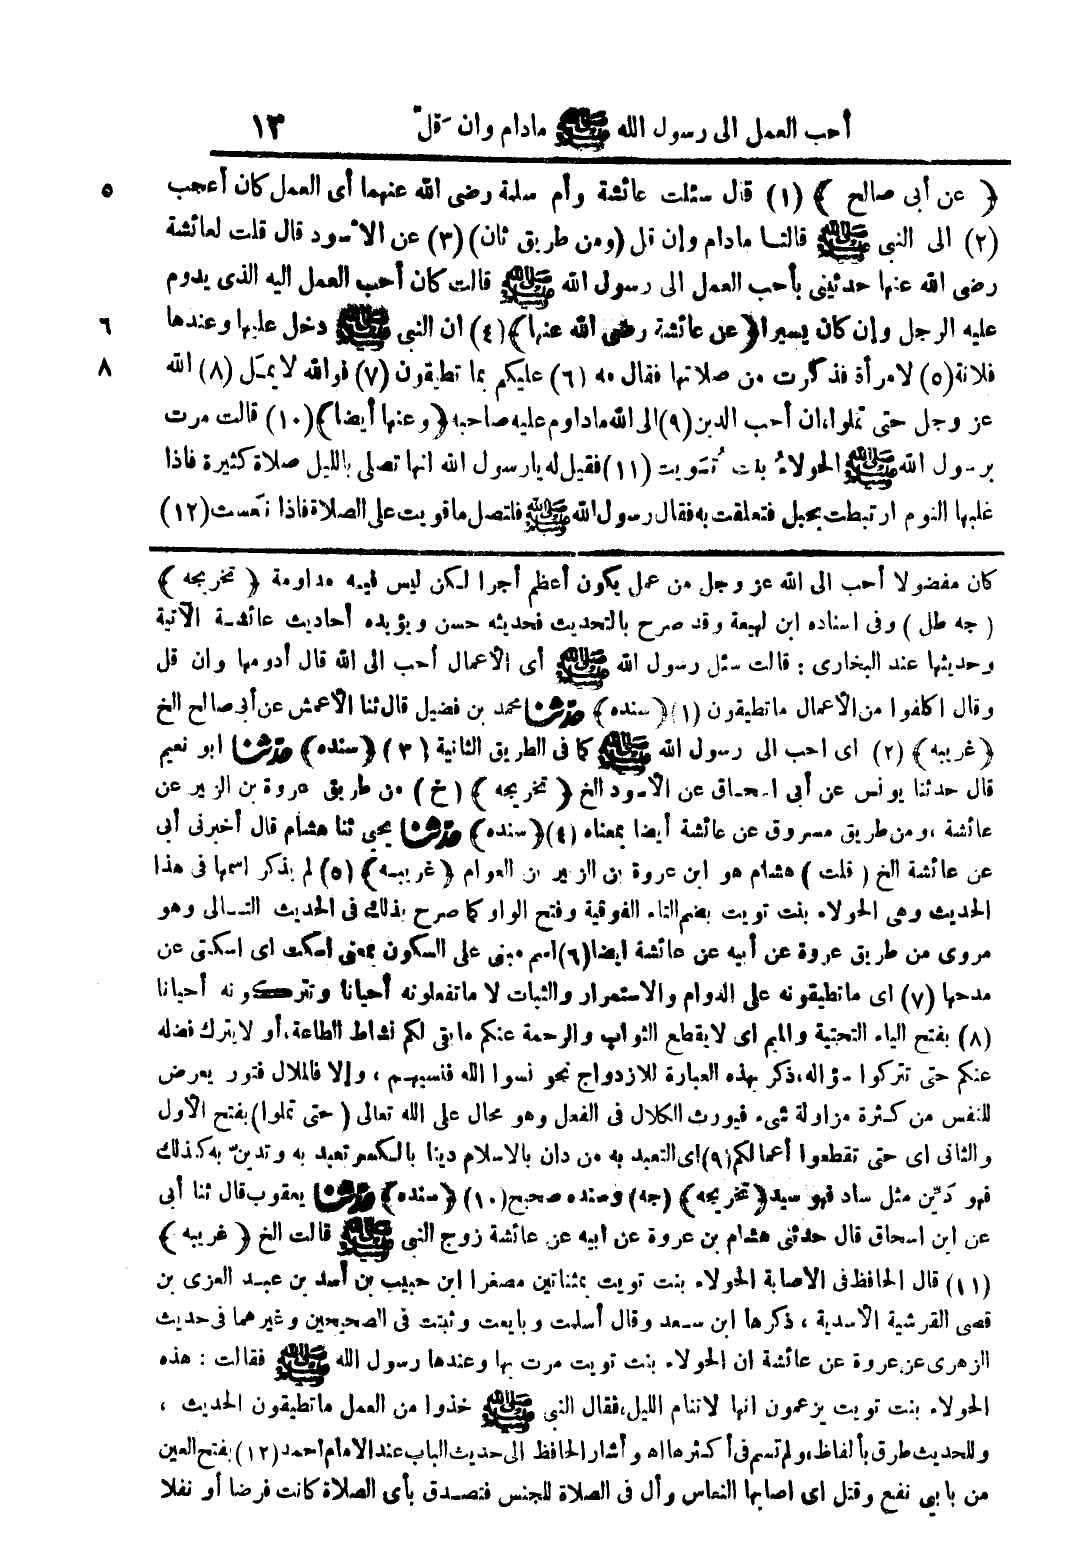 أحب العمل الى رسول الله ﷺ مادام وان قلّ ١٣
﴿ عن أبى صالح ﴾ (١) قال سئلت عائشة وأم سلمة رضى الله عنهما أى العمل كان أعجب ٥
(٢) الى النبى ﷺ قالتا مادام وإن قل (ومن طريق ثان) (٣) عن الأسود قال قلت لعائشة
رضى الله عنها حدثينى بأحب العمل الى رسول الله ﷺ قالت كان أحب العمل اليه الذى يدوم
عليه الرجل وإن كان يسيرا ﴿عن عائشة رضى الله عنها﴾ (٤) ان النبى ﷺ دخل عليها وعندها ٦
فلانة (٥) لامرأة فذكرت من صلاتها فقال مه (٦) عليكم بما تطيقون (٧) فوالله لا يمَل (٨) الله ٨
عز وجل حتى تملوا، ان أحب الدين (٩) الى الله ماداوم عليه صاحبه ﴿وعنها أيضا﴾ (١٠) قالت مرت
برسول الله ﷺ الحولاءُ بنت تُوَيت (١١) فقيل له يارسول الله انها تصلى بالليل صلاة كثيرة فاذا
غلبها النوم ارتبطت بحبل فتعلقت به فقال رسول الله ﷺ فلتصل ماقويت على الصلاة فاذا نعَست (١٢)
كان مفضولا أحب الى الله عز وجل من عمل يكون أعظم أجرا لكن ليس فيه مداومة ﴿ تخريجه ﴾
( جه طل ) وفى اسناده ابن لهيعة وقد صرح بالتحديث فحديثه حسن ويؤيده أحاديث عائشة الآتية
وحديثها عند البخارى : قالت سئل رسول الله ﷺ أى الأعمال أحب الى الله قال أدومها وان قل
وقال اكلفوا من الأعمال ماتطيقون (١) ﴿سنده﴾ حدثنا محمد بن فضيل قال ثنا الأعمش عن أبى صالح الخ
﴿غريبه﴾ (٢) اى احب الى رسول الله ﷺ كما فى الطريق الثانية (٣) ﴿سنده﴾ حدثنا ابو نعيم
قال حدثنا يونس عن أبى اسحاق عن الأسود الخ ﴿ تخريجه ﴾ (خ) من طريق عروة بن الزبير عن
عائشة ، ومن طريق مسروق عن عائشة أيضا بمعناه (٤) ﴿سنده﴾ حدثنا يحيى ثنا هشام قال أخبرنى أبى
عن عائشة الخ ( قلت ) هشام هو ابن عروة بن الزبير بن العوام ﴿غريبه﴾ (٥) لم يذكر اسمها فى هذا
الحديث وهى الحولاء بنت تويت بضم التاء الفوقية وفتح الواو كما صرح بذلك فى الحديث التالى وهو
مروى من طريق عروة عن أبيه عن عائشة ايضا (٦) اسم مبنى على السكون بمعنى اسكت اى اسكتى عن
مدحها (٧) اى ماتطيقونه على الدوام والاستمرار والثبات لا ماتفعلونه أحيانا وتتركونه أحيانا
(٨) بفتح الياء التحتية والميم اى لايقطع الثواب والرحمة عنكم مابقى لكم نشاط الطاعة ، أو لايترك فضله
عنكم حتى تتركوا سؤاله ، ذكر بهذه العبارة للازدواج نحو نسوا الله فنسيهم ، وإلا فالملال فتور يعرض
للنفس من كثرة مزاولة شىء فيورث الكلال فى الفعل وهو محال على الله تعالى ( حتى تملوا ) بفتح الأول
والثانى اى حتى تقطعوا أعمالكم (٩) اى التعبد به من دان بالاسلام دينا بالكسر تعبد به وتديّن به كذلك
فهو دَيّن مثل ساد فهو سيد ﴿تخريجه﴾ (جه) وسنده صحيح (١٠) ﴿سنده﴾ حدثنا يعقوب قال ثنا أبى
عن ابن اسحاق قال حدثنى هشام بن عروة عن ابيه عن عائشة زوج النبى ﷺ قالت الخ ﴿ غريبه ﴾
(١١) قال الحافظ فى الاصابة الحولاء بنت تويت بمثناتين مصغرا ابن حبيب بن أسد بن عبد العزى بن
قصى القرشية الأسدية ، ذكرها ابن سعد وقال أسلمت وبايعت وثبتت فى الصحيحين وغيرهما فى حديث
الزهرى عن عروة عن عائشة ان الحولاء بنت تويت مرت بها وعندها رسول الله ﷺ فقالت : هذه
الحولاء بنت تويت يزعمون انها لاتنام الليل، فقال النبى ﷺ خذوا من العمل ماتطيقون الحديث ،
وللحديث طرق بألفاظ، ولم تسم فى أكثرها اه وأشار الحافظ الى حديث الباب عند الامام احمد (١٢) بفتح العين
من بابى نفع وقتل اى اصابها النعاس وأل فى الصلاة للجنس فتصدق بأى الصلاة كانت فرضا أو نفلا